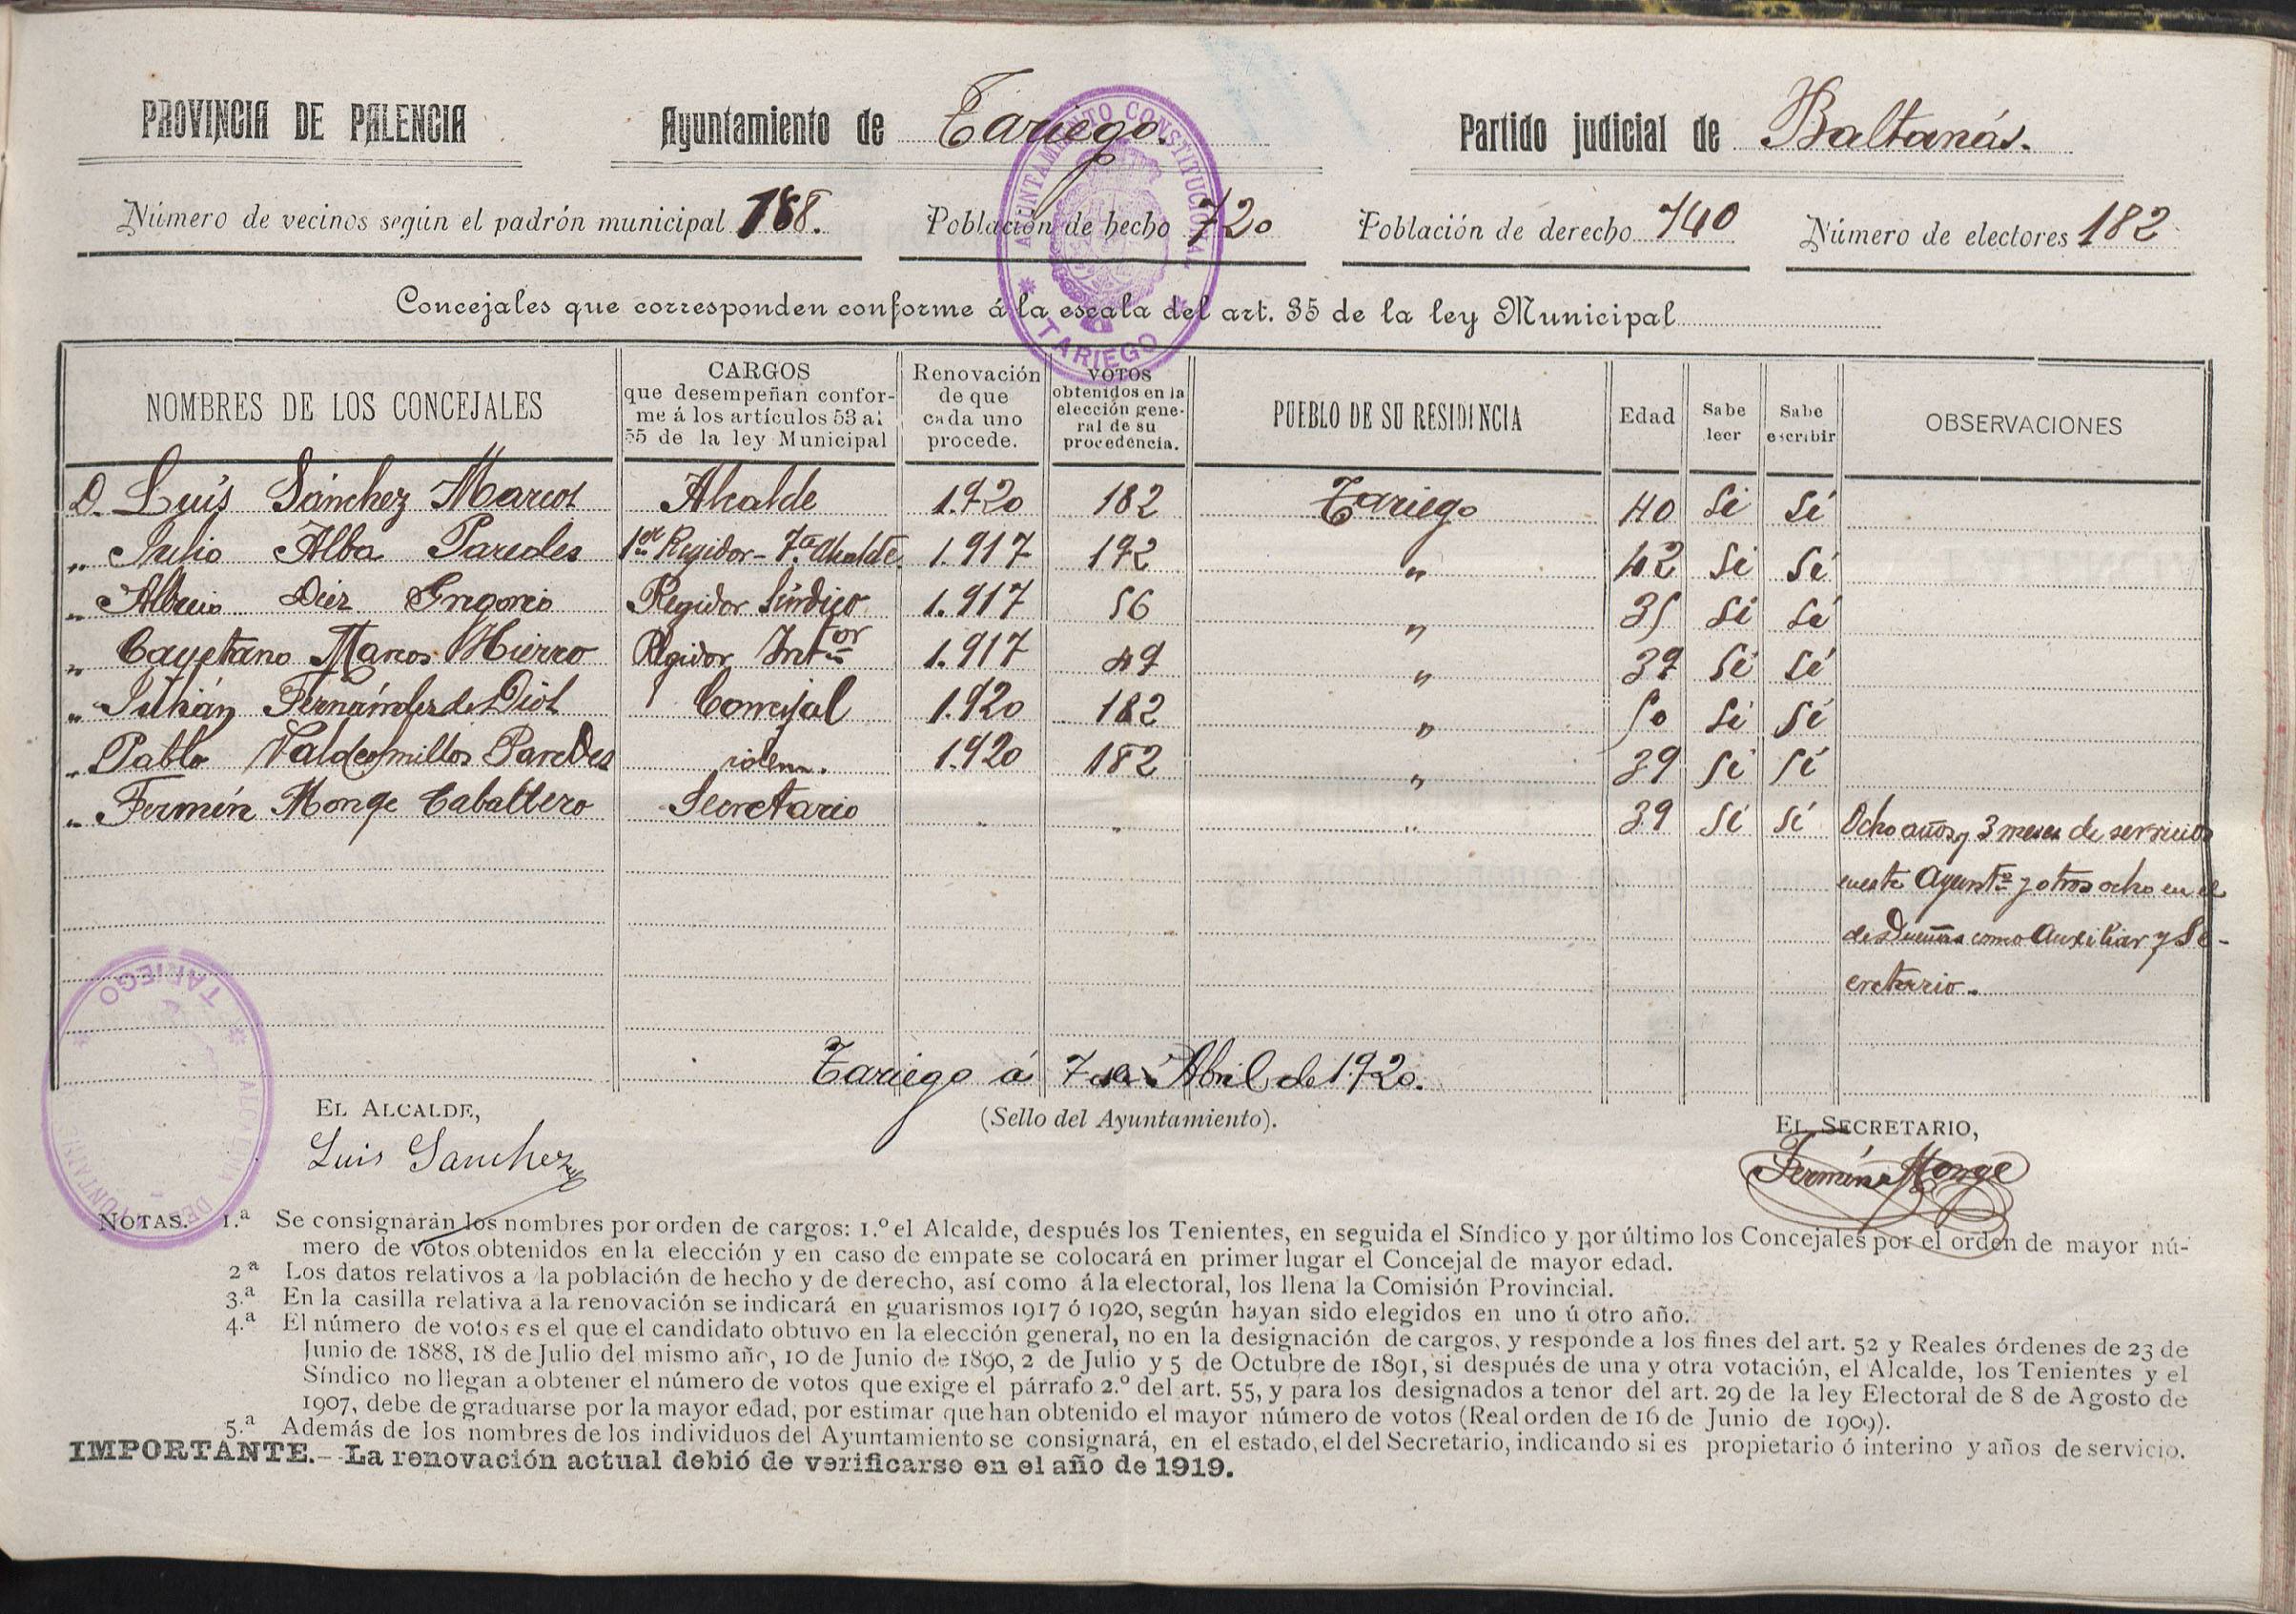 PROVINCIA DE PALENCIA Ayuntamiento de Tariego. Partido judicial de Baltanás.
AYUNTAMIENTO CONSTITUCIONAL * TARIEGO *
Número de vecinos según el padrón municipal 188. Población de hecho 720 Población de derecho 740 Número de electores 182
Concejales que corresponden conforme á la escala del art. 35 de la ley Municipal
NOMBRES DE LOS CONCEJALES
CARGOS
que desempeñan confor-
me á los artículos 53 al
55 de la ley Municipal
Renovación
de que
cada uno
procede.
VOTOS
obtenidos en la
elección gene-
ral de su
procedencia.
PUEBLO DE SU RESIDENCIA
Edad
Sabe
leer
Sabe
escribir
OBSERVACIONES
D. Luis Sánchez Marcos Alcalde 1.920 182 Tariego 40 Si Sí
" Julio Alba Paredes 1er Regidor - Te Alcalde. 1.917 172 " 42 Si Sí
" Diez Gregorio Regidor Síndico 1.917 56 " 35 Si Sí
" Cayetano Marcos Hierro Regidor Intor 1.917 49 " 37 Sí Sí
" Julián Fernández de Diol Concejal 1.920 182 " 50 Si Sí
" Pablo Valdeolmillos Paredes idem. 1.920 182 " 39 Si Sí
" Fermín Monge Caballero Secretario " " " 39 Sí Sí Ocho años y 3 meses de servicios
en este Ayunto y otros ocho en el
de Dueñas como Auxiliar y Se-
cretario.
Tariego á 7 de Abril de 1920.
EL ALCALDE,
(Sello del Ayuntamiento).
EL SECRETARIO,
Luis Sanchez
Fermín Monge
ALCALDIA DEL AYUNTAMIENTO * TARIEGO *
NOTAS. 1.ª Se consignarán los nombres por orden de cargos: 1.º el Alcalde, después los Tenientes, en seguida el Síndico y por último los Concejales por el orden de mayor nú-
mero de votos obtenidos en la elección y en caso de empate se colocará en primer lugar el Concejal de mayor edad.
2.ª Los datos relativos a la población de hecho y de derecho, así como á la electoral, los llena la Comisión Provincial.
3.ª En la casilla relativa a la renovación se indicará en guarismos 1917 ó 1920, según hayan sido elegidos en uno ú otro año.
4.ª El número de votos es el que el candidato obtuvo en la elección general, no en la designación de cargos, y responde a los fines del art. 52 y Reales órdenes de 23 de
Junio de 1888, 18 de Julio del mismo año, 10 de Junio de 1890, 2 de Julio y 5 de Octubre de 1891, si después de una y otra votación, el Alcalde, los Tenientes y el
Síndico no llegan a obtener el número de votos que exige el párrafo 2.º del art. 55, y para los designados a tenor del art. 29 de la ley Electoral de 8 de Agosto de
1907, debe de graduarse por la mayor edad, por estimar que han obtenido el mayor número de votos (Real orden de 16 de Junio de 1909).
5.ª Además de los nombres de los individuos del Ayuntamiento se consignará, en el estado, el del Secretario, indicando si es propietario ó interino y años de servicio.
IMPORTANTE.--La renovación actual debió de verificarse en el año de 1919.